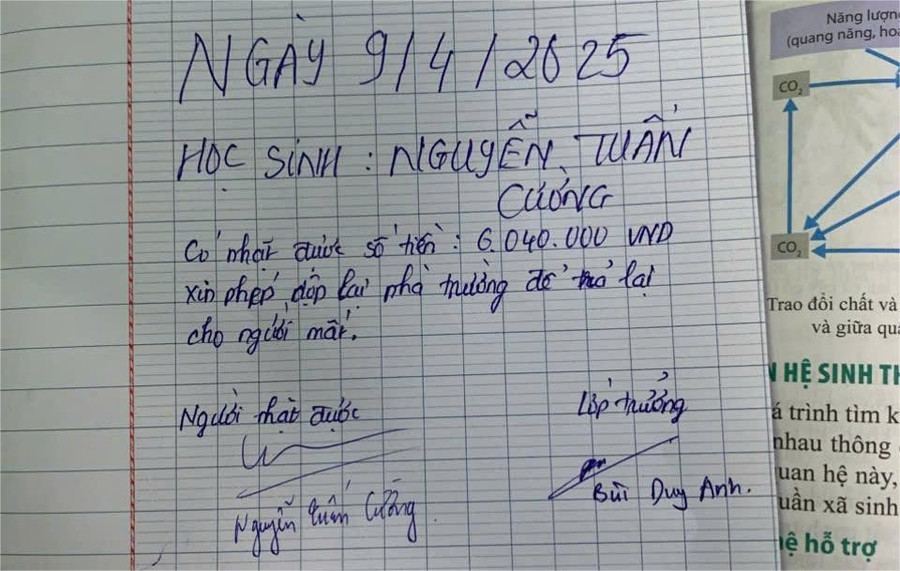 NGÀY 9/4/2025
HỌC SINH : NGUYỄN TUẤN
CƯỜNG
Có nhặt được số tiền : 6.040.000 VND
xin phép nộp lại nhà trường để trả lại
cho người mất.
Người nhặt được
Lớp trưởng
Nguyễn Tuấn Cường
Bùi Duy Anh.
Năng lượn
(quang năng, ho
CO₂
CO₂
Trao đổi chất và
và giữa qu
HỆ SINH T
á trình tìm k
nhau thông
uan hệ này,
uần xã sinh
hệ hỗ trợ